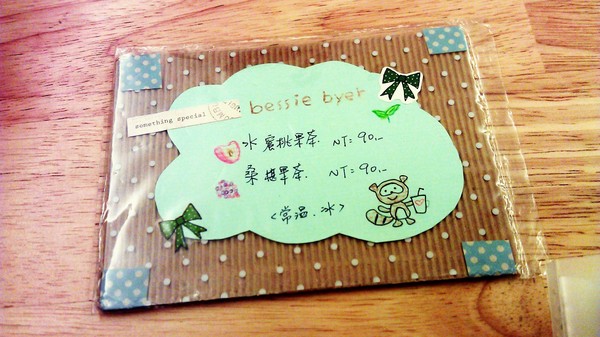 bessie byer
something special
水蜜桃果茶. NT: 90.-
桑椹果茶. NT: 90.-
<常溫.冰>